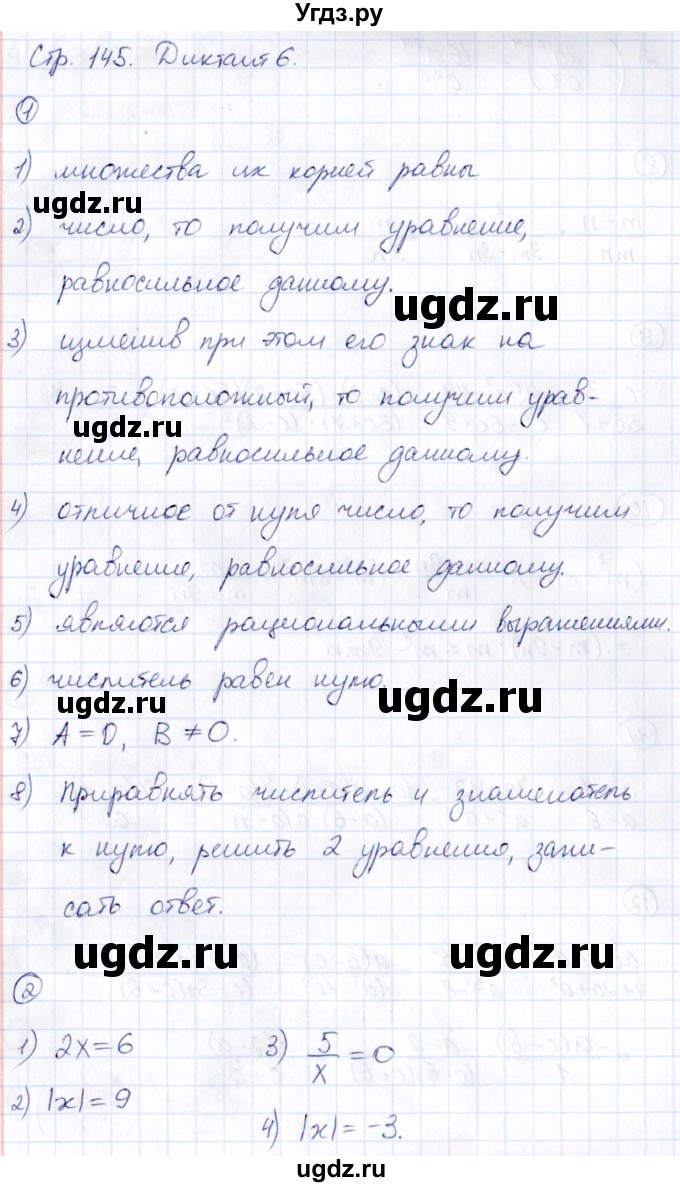 Угдз.ру
Стр. 145. Диктант 6.
1
1) множества их корней равны
ugdz.ru
2) число, то получим уравнение,
равносильное данному.
ugdz.ru
3) изменив при этом его знак на
противоположный, то получим урав-
ugdz.ru
нение, равносильное данному.
4) отличное от нуля число, то получим
уравнение, равносильное данному.
5) являются рациональными выражениями.
6) числитель равен нулю.
ugdz.ru
ugdz.ru
7) A = 0, B ≠ 0.
8) Приравнять числитель и знаменатель
к нулю, решить 2 уравнения, запи-
сать ответ.
ugdz.ru
ugdz.ru
2
1) 2x = 6
3) 5/x = 0
2) |x| = 9
4) |x| = -3.
ugdz.ru